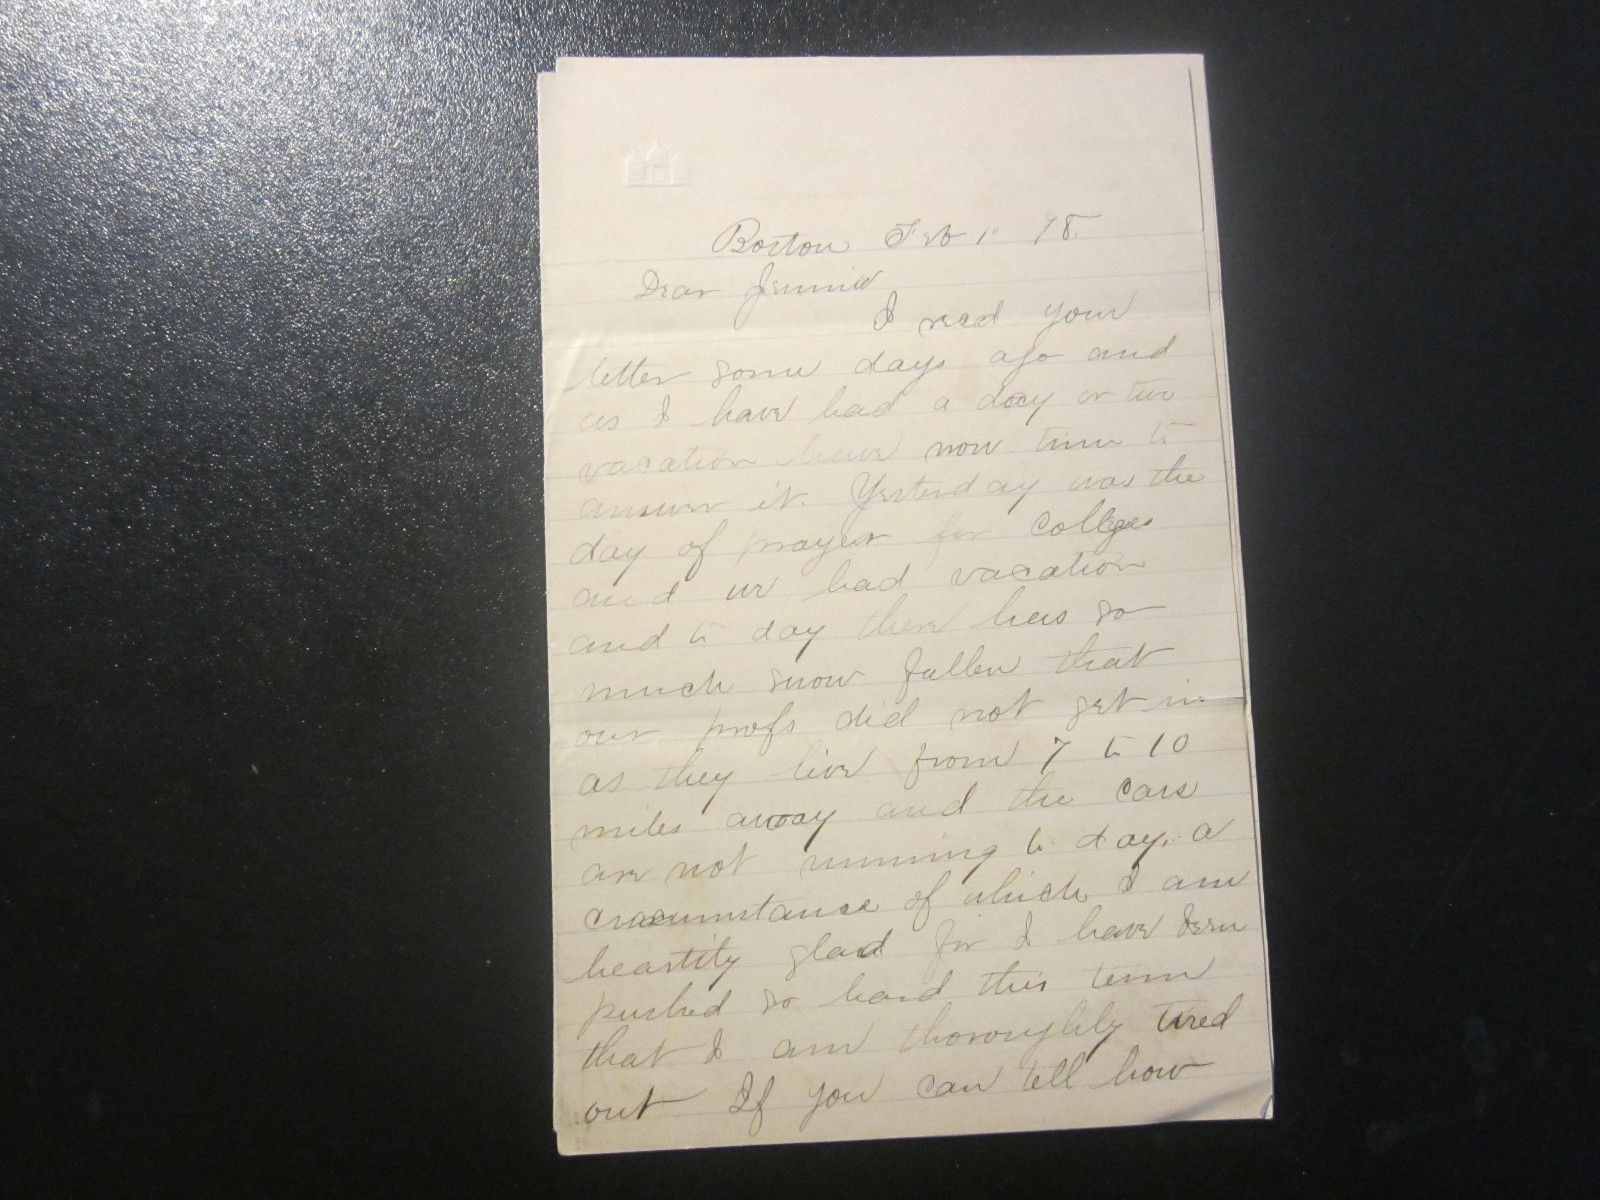 Boston Feb 1. 78.
Dear Jennie
I read your
letter some days ago and
as I have had a day or two
vacation have now time to
answer it. Yesterday was the
day of prayer for Colleges
and we had vacation
and to day there has so
much snow fallen that
our profs did not get in
as they live from 7 to 10
miles away and the cars
are not running to day, a
circumstance of which I am
heartily glad for I have been
pushed so hard this term
that I am thoroughly tired
out If you can tell how